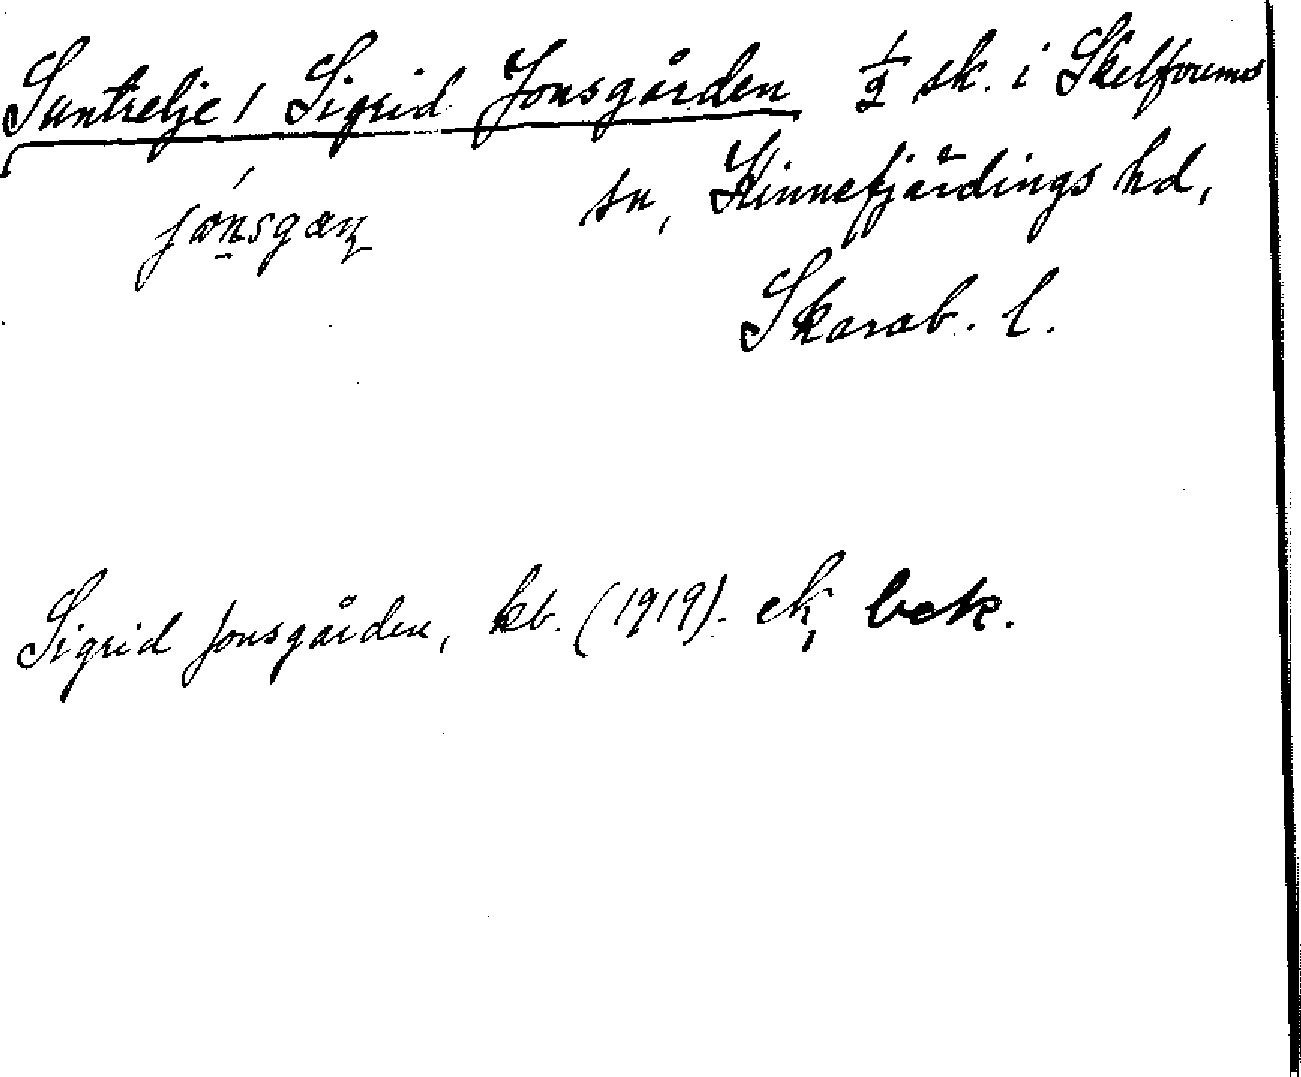 Suntrelje, Sigrid Jonsgården 1/2 sk. i Skelfoums
jónsgaṇ sn, Kinnefjärdings hd,
Skarab. l.
Sigrid Jonsgården, kb. (1919). ek, bek.